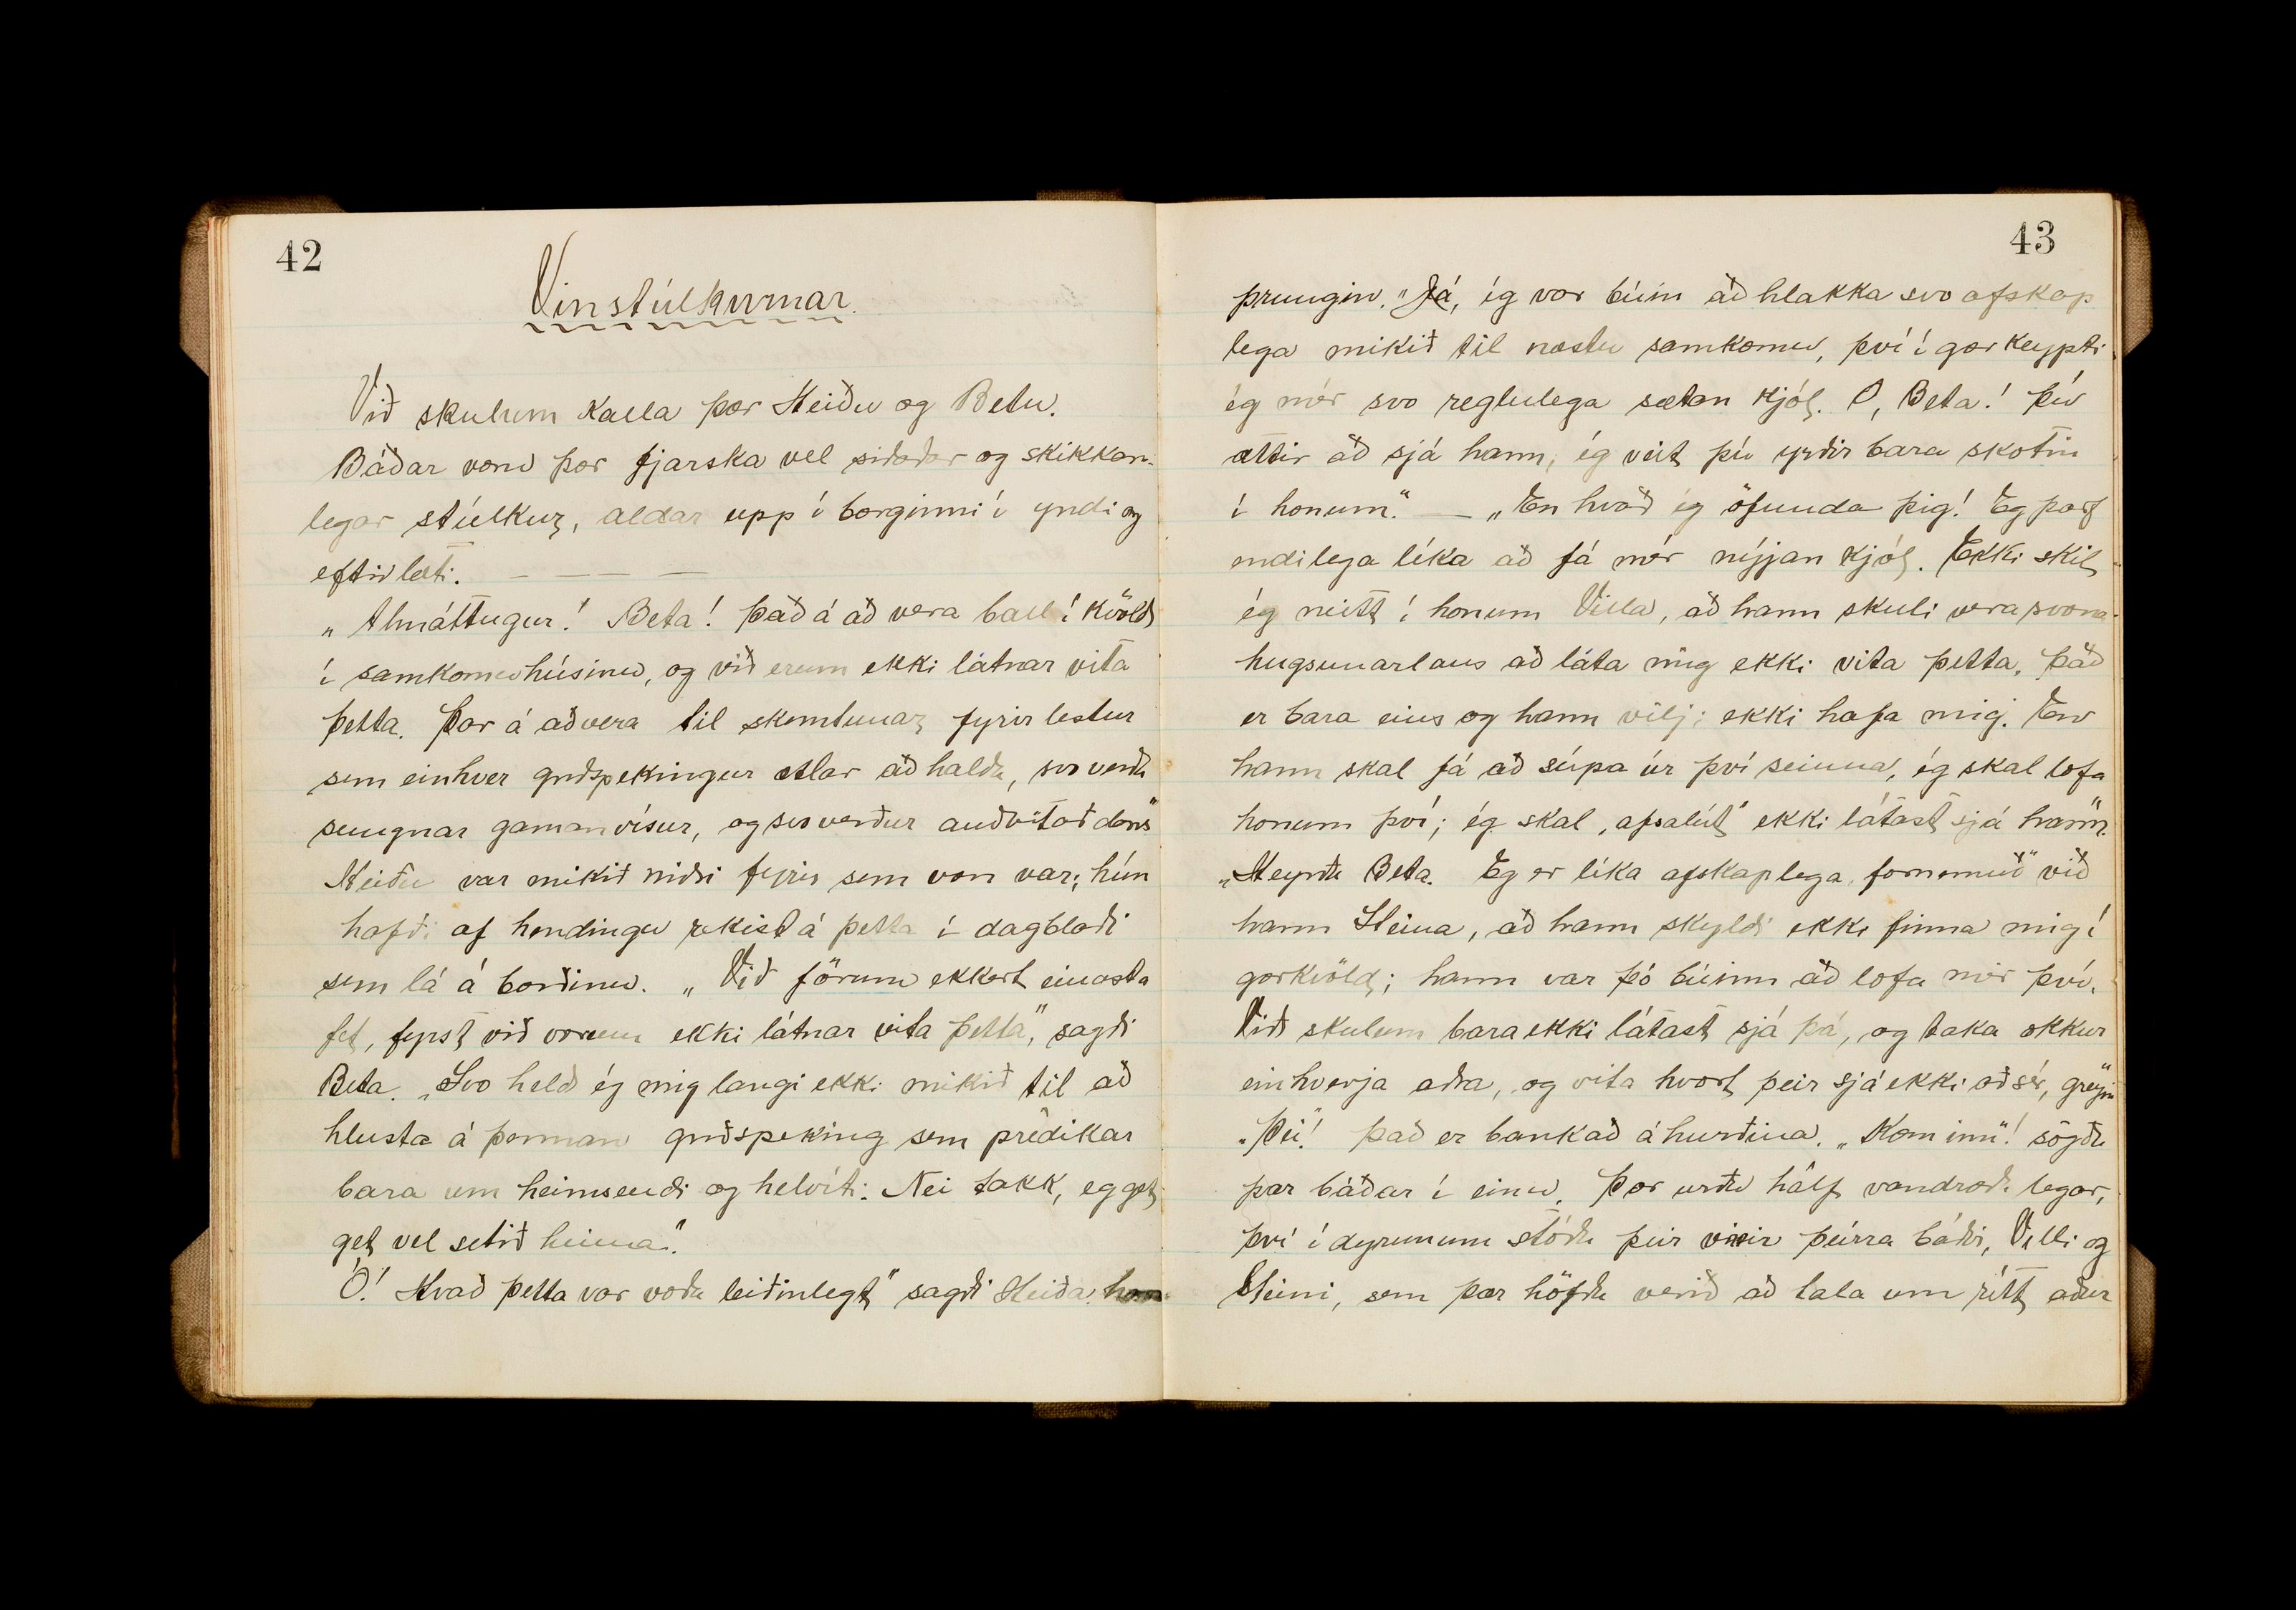 42
Vinstúlkurnar.
Við skulum kalla þær Heiðu og Betu.
Báðar voru þær fjarska vel siðaðar og skikkan-
legar stúlkur, aldar upp í borginni í yndi og
eftirlæti. — — — —
„Almáttugur! Beta! Það á að vera ball í kvöld
í samkomuhúsinu, og við erum ekki látnar vita
þetta. Þar á að vera til skemtunar, fyrirlestur
sem einhver guðspekingur ætlar að halda, svo verða
sungnar gamanvísur, og svo verður auðvitað dans"
Heiðu var mikið niðri fyrir sem von var; hún
hafði af hendingu rekist á þetta í dagblaði
sem lá á borðinu. „Við förum ekkert einasta
fet, fyrst við vorum ekki látnar vita þetta", sagði
Beta. „Svo held ég mig langi ekki mikið til að
hlusta á þennan guðspeking sem prédikar
bara um heimsendi og helvíti. Nei takk, eg get
get vel setið heima".
Ó! Hvað þetta var voða leiðinlegt" sagði Heiða
43
þrungin. "Já, ég var búin að hlakka svo afskap
lega mikið til næstu samkomu, því í gær keypti
ég mér svo reglulega sætan kjól. Ó, Beta! Þú
ættir að sjá hann, ég veit þú yrðir bara skotin
í honum." — „En hvað ég öfunda þig! Eg þarf
endilega líka að fá mér nýjan kjól. Ekki skil
ég neitt í honum Villa, að hann skuli vera svona
hugsunarlaus að láta mig ekki vita þetta. Það
er bara eins og hann vilji ekki hafa mig. En
hann skal fá að súpa úr því seinna, ég skal lofa
honum því; ég skal „afsalút" ekki látast sjá hann".
„Heyrðu Beta. Eg er líka afskaplega „fornemuð" við
hann Steina, að hann skyldi ekki finna mig í
gærkvöld; hann var þó búinn að lofa mér því.
Við skulum bara ekki látast sjá þá, og taka okkur
einhverja aðra, og vita hvort þeir sjá ekki að sér, greyin"
„Þei"! Það er bankað á hurðina. „Kom inn"! sögðu
þær báðar í einu. Þær urðu hálf vandræða legar,
því í dyrunum stóðu þeir vinir þeirra báðir, Villi og
Steini, sem þær höfðu verið að tala um rétt áður